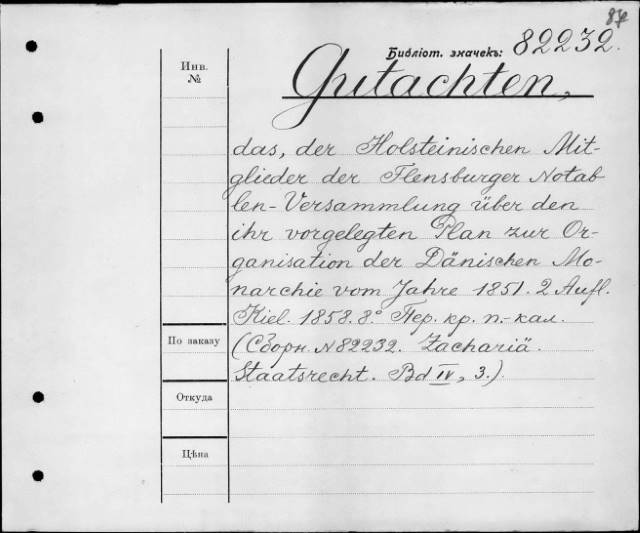 87
Библіот. значекъ: 82232.
Инв.
№
Gutachten,
das, der Holsteinischen Mit-
glieder der Flensburger Notab
len-Versammlung über den
ihr vorgelegten Plan zur Or-
ganisation der Dänischen Mo-
narchie vom Jahre 1851. 2 Aufl.
Kiel. 1858. 8.° Пер. кр. п.-кал.
По заказу
(Сборн. N 82232. Zachariä.
Staatsrecht. Bd IV, 3.)
Откуда
Цѣна